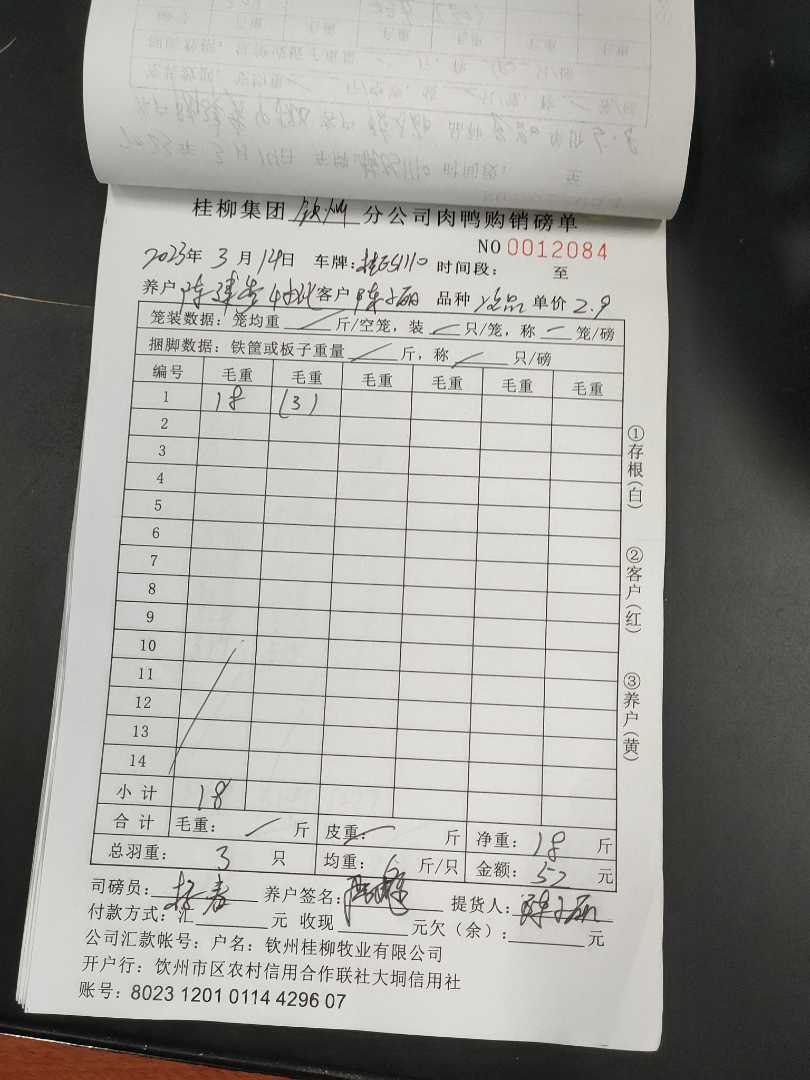 桂柳集团 钦州 分公司肉鸭购销磅单
NO 0012084
2023年 3 月 14日 车牌: 时间段: 至
养户 陈 客户 陈 丽 品种 单价 2.9
笼装数据：笼均重 / 斤/空笼，装 / 只/笼，称 / 笼/磅
捆脚数据：铁筐或板子重量 / 斤，称 / 只/磅
编号 毛重 毛重 毛重 毛重 毛重 毛重
1 18 (3)
2
3
4
5
6
7
8
9
10
11
12
13
14
小计 18
合计 毛重： / 斤 皮重： / 斤 净重：18 斤
总羽重： 3 只 均重：6 斤/只 金额：52 元
司磅员： 养户签名： 提货人：
付款方式：汇 元 收现 元欠（余）： 元
公司汇款帐号：户名：钦州桂柳牧业有限公司
开户行：钦州市区农村信用合作联社大垌信用社
账号：8023 1201 0114 4296 07
①存根（白）
②客户（红）
③养户（黄）